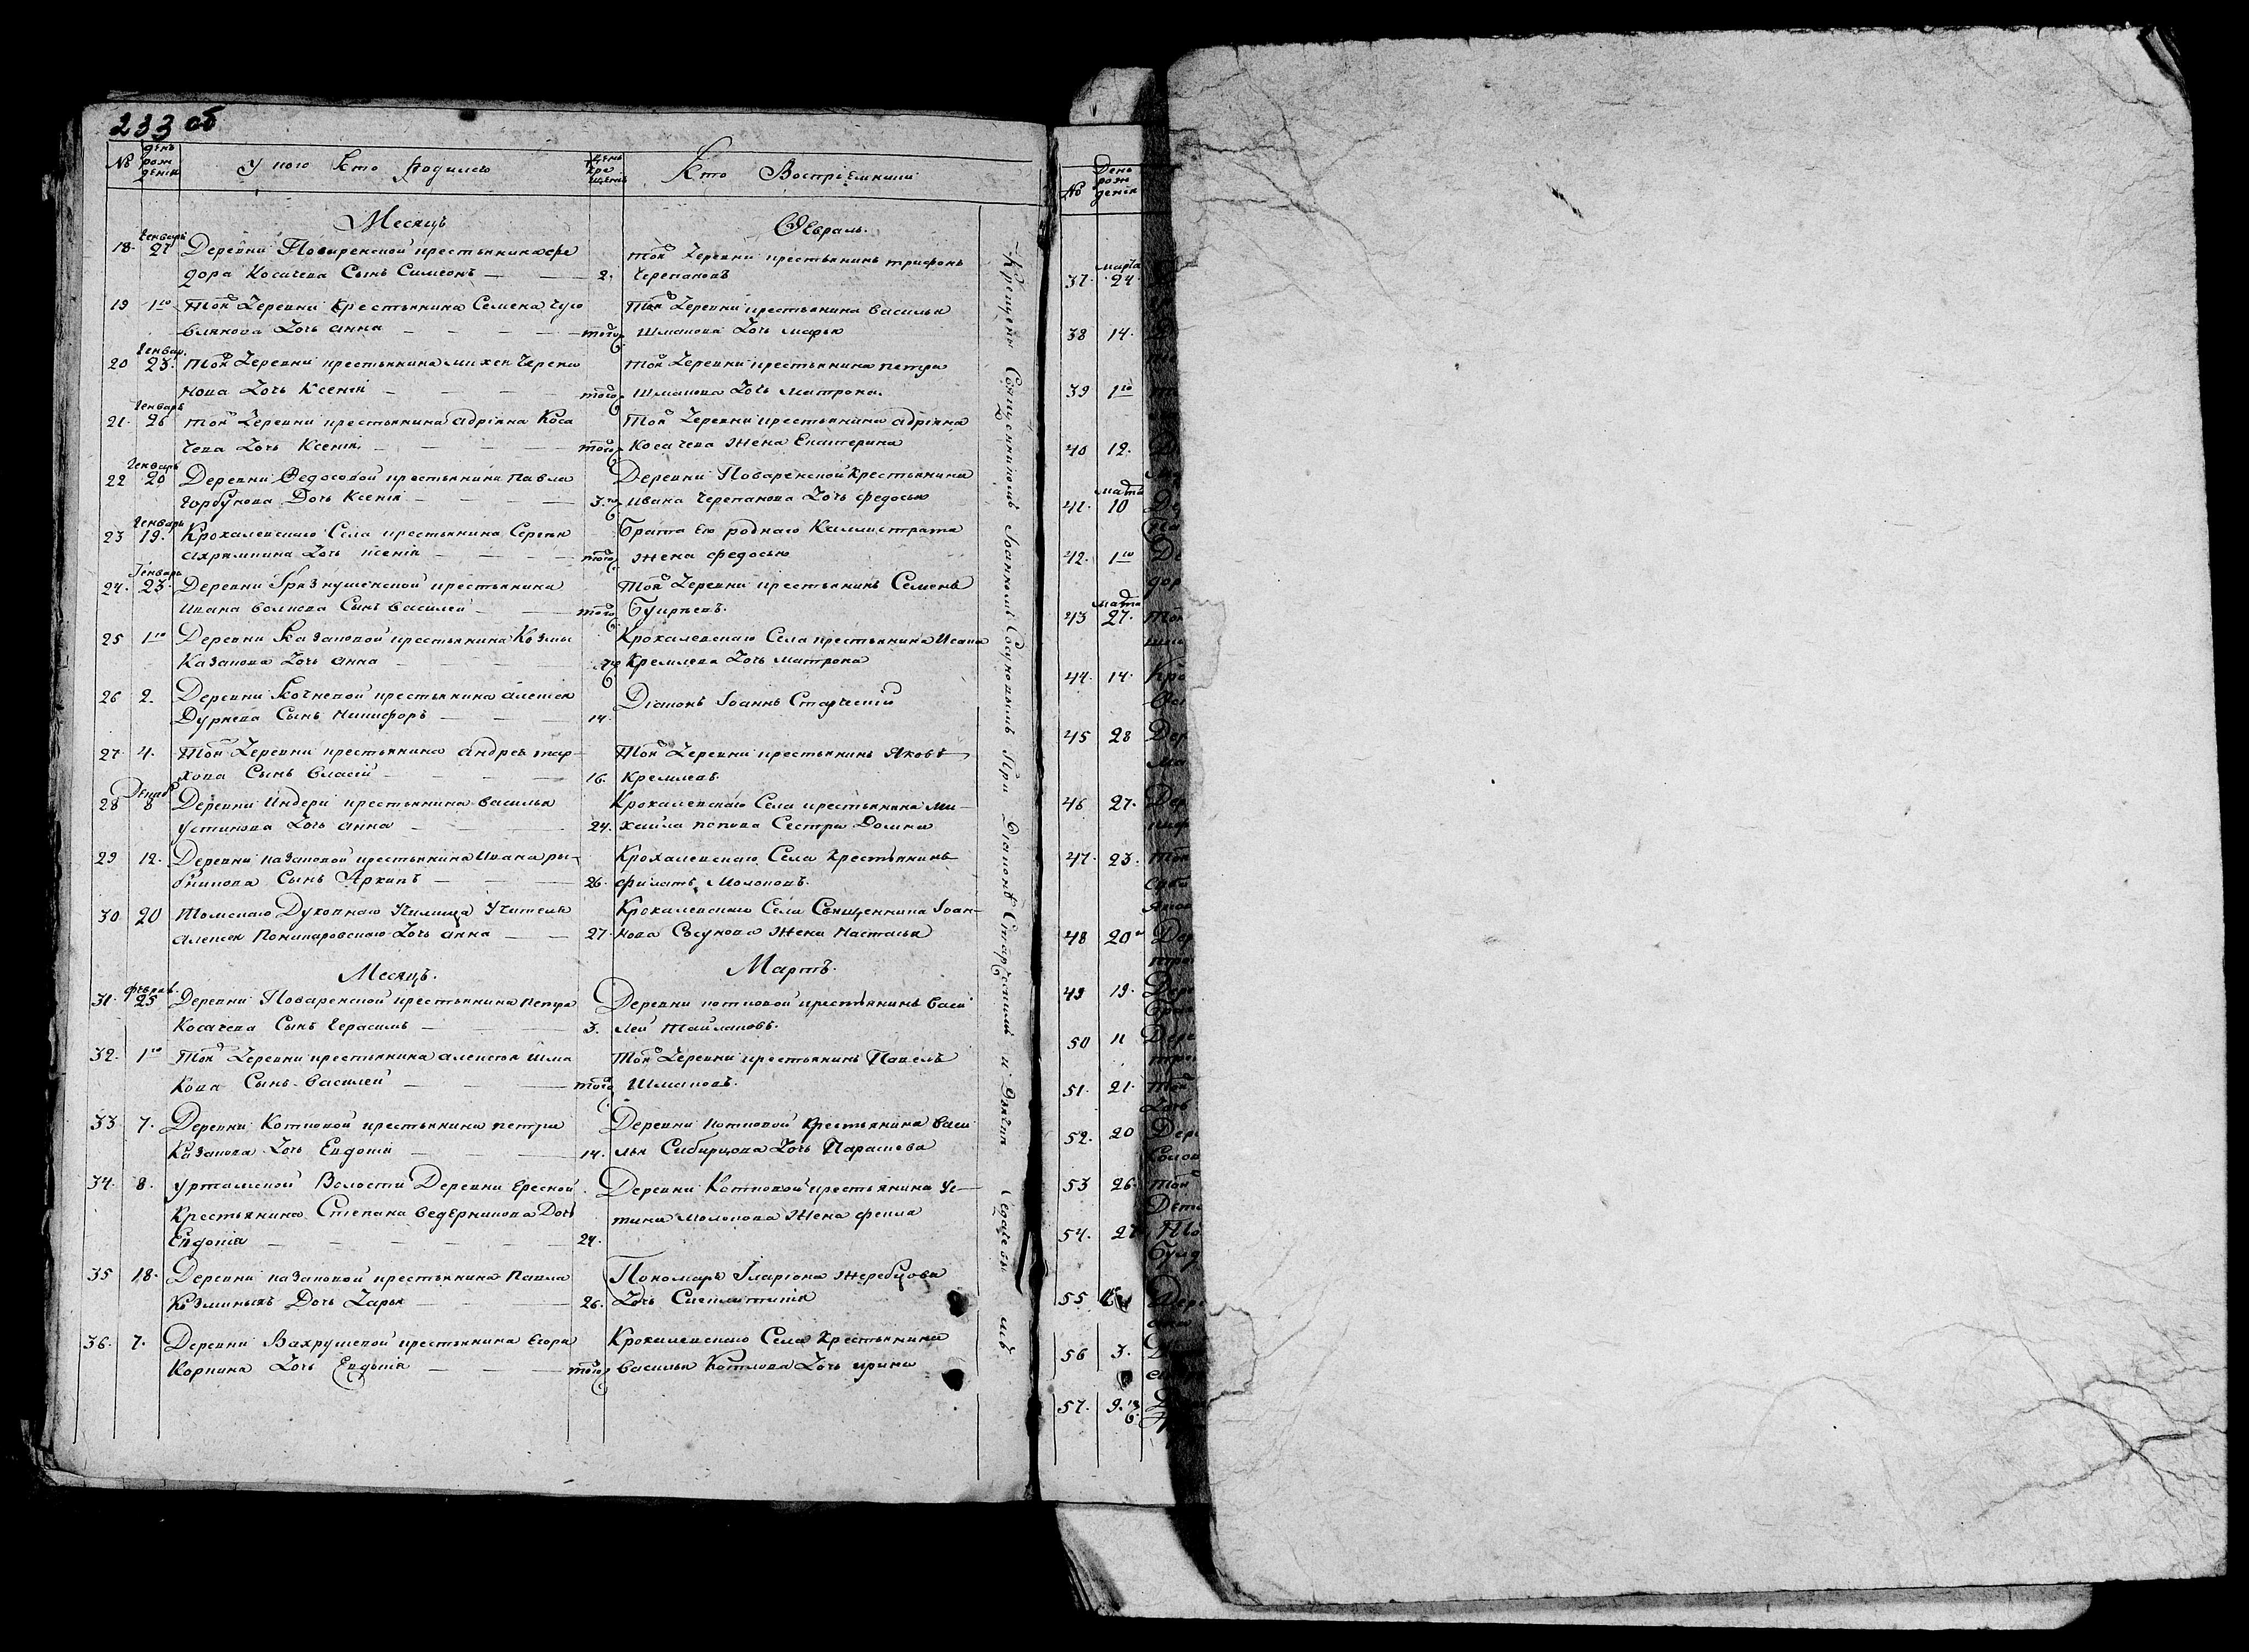 233 об
№
день рож дения
У кого кто родился
день кре щения
Кто Восприемники
Месяцъ
Февраль.
18. Генварь 27 Деревни Поваренской крестьянина Фе
дора Косачева Сынъ Симеонъ — — 2.
той Деревни крестьянинъ трифонъ
Черепановъ
19 1го Той Деревни Крестьянина Семена
Дочь анна — — — — того
Той Деревни крестьянина василья
Шмакова Дочь марья
20 Генвар. 23. той Деревни крестьянина михея Черепа
нова Дочь Ксенія — — того
той Деревни крестьянина петра
Шмакова Дочь матрона.
21. Генварь 26 той Деревни крестьянина адріяна Коса
чева Дочь Ксенія — — — того
Той Деревни крестьянина адріяна
Косачева Жена Екатерина
22 Генварь 20 Деревни Федосовой крестьянина павла
Горбунова Дочь Ксенія — — — 3.го
Деревни Поваренской Крестьянина
ивана Черепанова Дочь федосья
23 Генварь 19. Крохалевскаго Села крестьянина Сергея
Дочь ксенія — — — того
брата Его роднаго Каллистрата
Жена федосья
24. Генварь 23. Деревни Грязнушенской крестьянина
Ивана волкова Сынъ василей — — того
Той Деревни крестьянинъ Семенъ
25 1го Деревни Казаковой крестьянина Козмы
Казакова Дочь анна — — —
Крохалевскаго Села крестьянина Исака
Кремлева Дочь матрона
26 2. Деревни Кочневой крестьянина алексея
Дурнева Сынъ Никифоръ — — — 14.
Діаконъ Іоаннъ Старческій
27. 4. Той Деревни крестьянина андрея
хова Сынъ власій — — — 16.
Той Деревни крестьянинъ Яковъ
Кремлевъ.
28 8 Деревни Индери крестьянина василья
устинова Дочь анна — — — 24.
Крохалевскаго Села крестьянина Ми-
хайла попова Сестра Домна
29 12. Деревни казаковой крестьянина Ивана ры-
бникова Сынъ Архипъ — — — 26.
Крохалевскаго Села Крестьянинъ
филатъ Молоковъ.
30 20 Томскаго Духовнаго Училища Учителя
алексея Дочь анна — — 27.
Крохалевскаго Села Священника Іоан-
нова Сосунова Жена Настасья
Месяцъ.
Мартъ.
31. феврал. 25 Деревни Поваренской крестьянина петра
Косачева Сынъ Герасимъ — — 3.
Деревни котковой крестьянинъ Васи
лей Тайлаковъ.
32. 1го Той Деревни крестьянина алексея Шма
кова Сынъ Василей — — — того
Той Деревни крестьянинъ Павелъ
Шмаковъ.
33 7. Деревни Котковой крестьянина петра
Казакова Дочь Евдокія — — — 14.
Деревни котковой Крестьянина Васи
лья Сибирцова Дочь Парасковa
34. 8. уртамской Волости Деревни Ересной
Крестьянина Степана ведерникова Дочь
Евдокія — — — — — 24.
Деревни Котковой крестьянина Ус-
тина молокова Жена фекла
35 18. Деревни казаковой крестьянина павла
Козминыхъ Дочь Дарья — — — 26.
Пономаря Іларіона Жеребцова
Дочь
36. 7. Деревни Вахрушевой крестьянина Егора
Корнина Дочь Евдокія — — — того
Крохалевскаго Села Крестьянина
василья Коткова Дочь ирина
Крещены Священникомъ Іоанномъ Сосуновымъ при Діаконѣ Старческимъ и
№
День рож дения
37. Марта 24.
38 14.
39 1го
40 12.
41. 10
42. 1го
43 27.
44. 14.
45 28
46 27.
47. 23.
48 20
49 19.
50 11
51. 21.
52. 20
53 26.
54. 27
55
56 3.
57. 9.